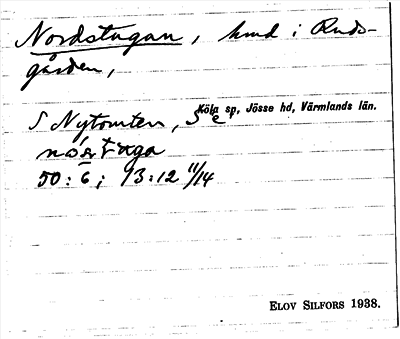 Nordstugan, hmd i Ruds-
gården,
S Nytomten, Se
Köla sp, Jösse hd, Värmlands län.
50:6; 93:12 11/14
ELOV SILFORS 1938.